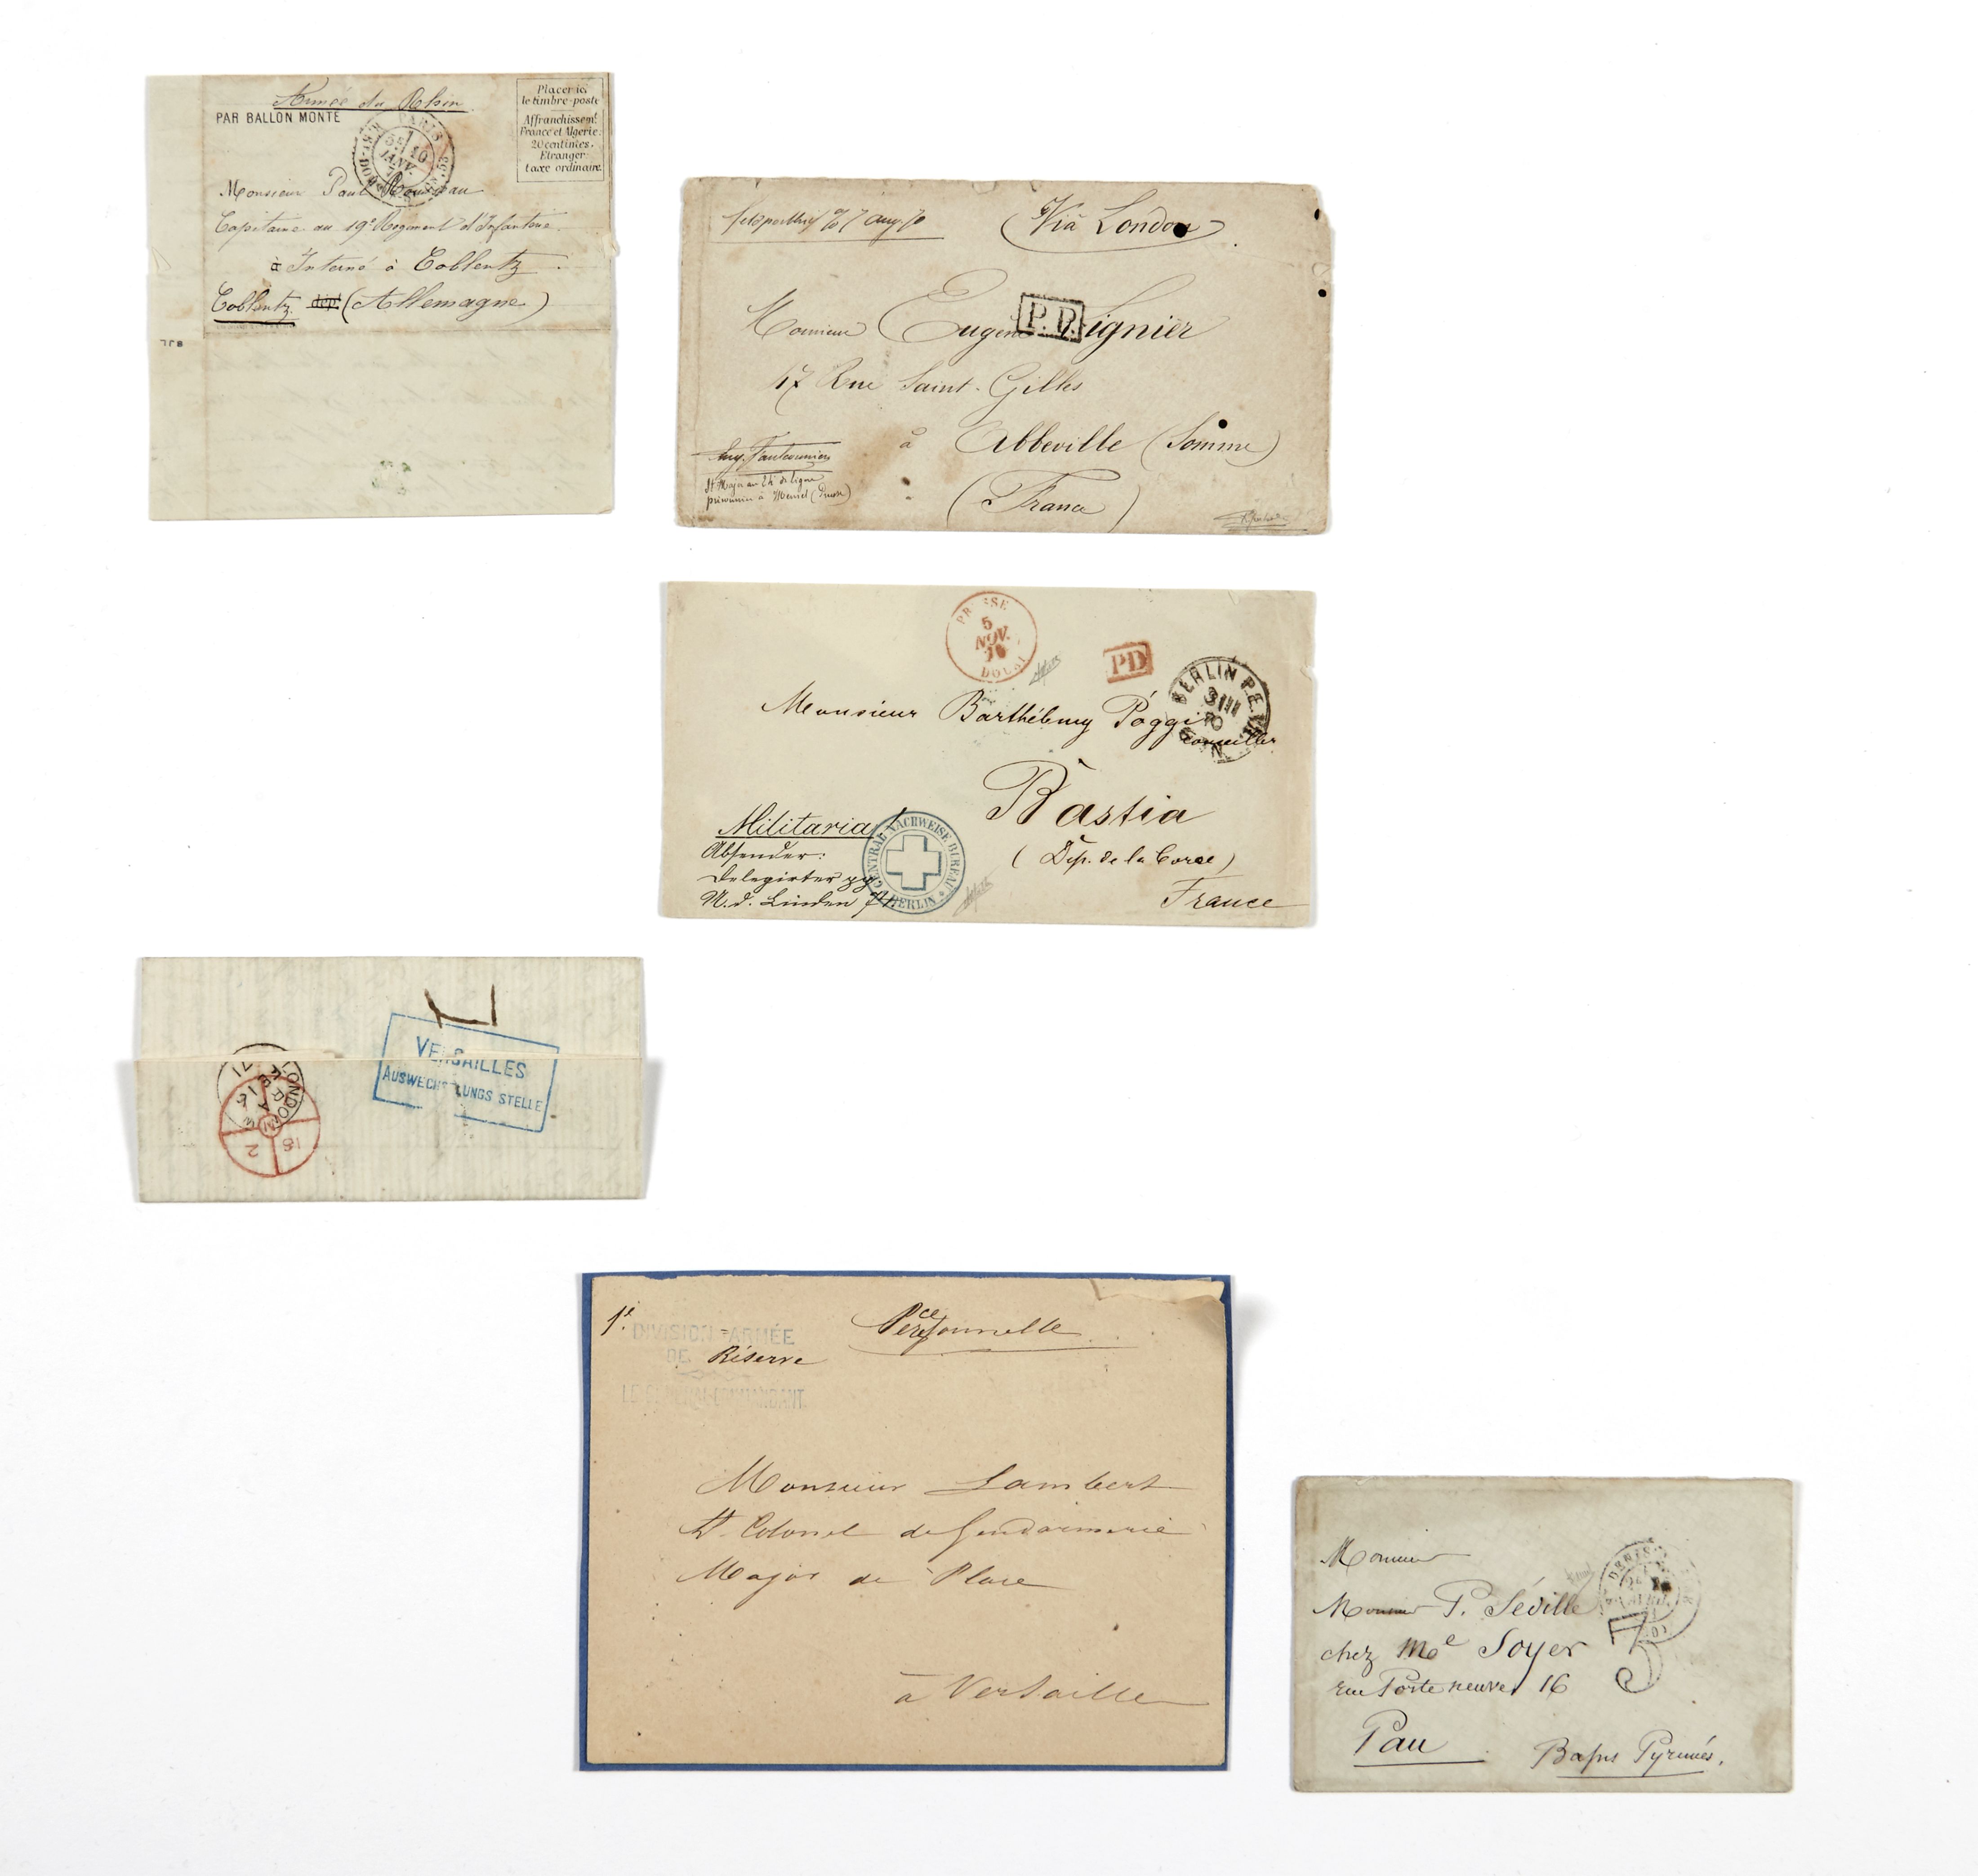 Armée du Rhin
PAR BALLON MONTÉ
Placer ici
le timbre-poste
Affranchissemt
France et Algérie:
20 centimes.
Etranger:
taxe ordinaire.
PARIS
JANV.
Monsieur Paul
Capitaine au 19e Régiment d'Infanterie
à Interné à Coblentz
Coblentz dépt (Allemagne)
7 aug 70
Via London
P.P.
Monsieur Eugène Lignier
47 Rue Saint-Gilles
à Abbeville (Somme)
(France)
prisonnier à
PRUSSE
5
NOV.
70
DOUAI
PD
BERLIN P.E.
70
Monsieur Barthélemy Poggi
Conseiller
Bastia
(Dép. de la Corse)
France
Militaria
Absender:
Delegirter
U. d. Linden
CENTRAL NACHWEISE BUREAU
BERLIN
LONDON
71
18
2
VERSAILLES
AUSWECHSLUNGS STELLE
1e
DIVISION ARMÉE
DE Réserve
LE GÉNÉRAL COMMANDANT
Personnelle
Monsieur Lambert
Lt Colonel de Gendarmerie
Major de Place
à Versailles
Monsieur
Monsieur P. Séville
chez Me Soyer
rue Porte neuve 16
Pau
Basses Pyrénées.
ST DENIS
3